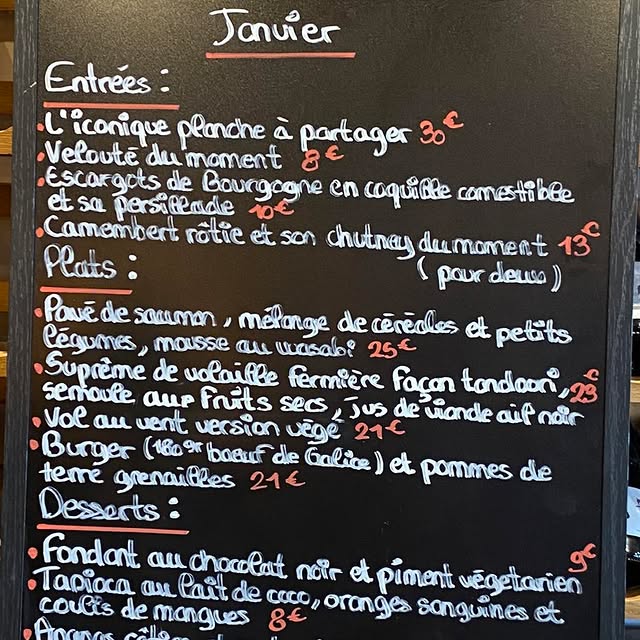 Janvier
Entrées :
• L'iconique planche à partager 30€
• Velouté du moment 8€
• Escargots de Bourgogne en coquille comestible
et sa persillade 10€
• Camembert rôtie et son chutney du moment 13€
(pour deux)
Plats :
• Pavé de saumon, mélange de céréales et petits
légumes, mousse au wasabi 25€
• Suprême de volaille fermière façon tandoori, 23€
semoule aux fruits secs, jus de viande ail noir
• Vol au vent version végé 21€
• Burger (180gr boeuf de Galice) et pommes de
terre grenailles 21€
Desserts :
• Fondant au chocolat noir et piment végétarien 9€
• Tapioca au lait de coco, oranges sanguines et
coulis de mangues 8€